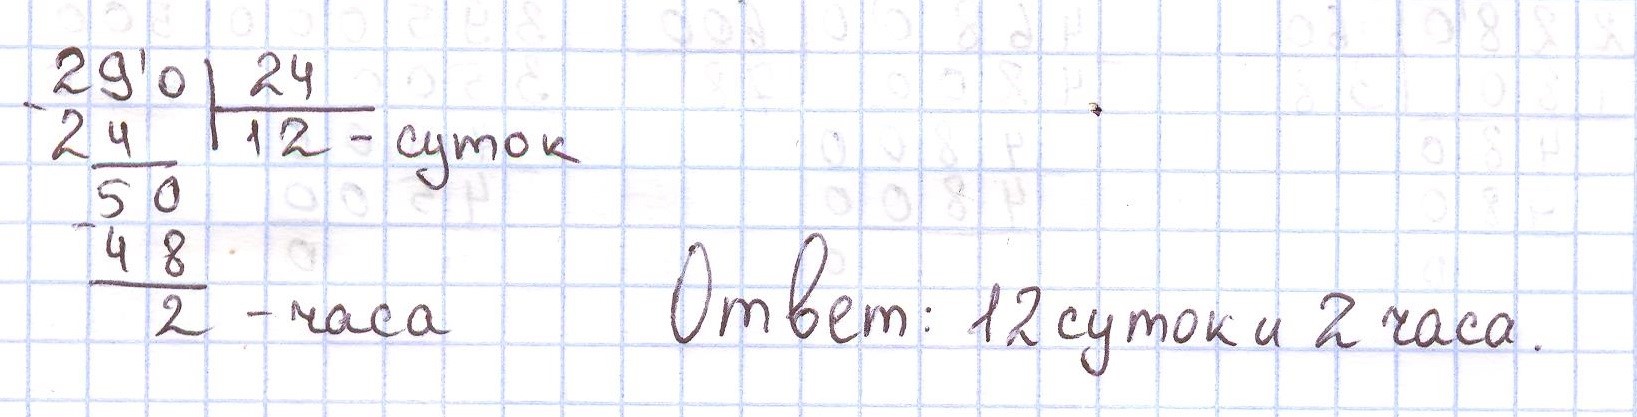 29'0 | 24
- 24 | 12 - суток
50
- 48
2 - часа
Ответ: 12 суток и 2 часа.